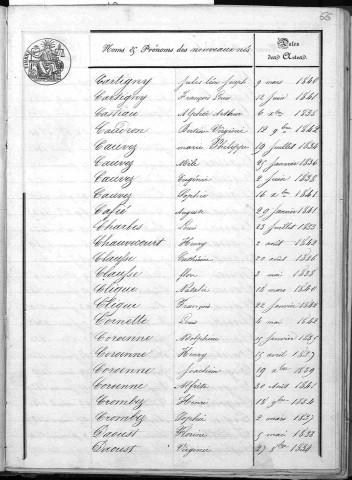 66
Noms & Prénoms des nouveaux nés
Dates des Actes
Cartigny Jules Léon Joseph 9 mars 1840
Cartigny François Louis 12 juin 1841
Casseau Alphée Arthur 6 xbre 1836
Virginie 12 9bre 1842
Cauvez marie Philippe 19 juillet 1834
Cauvez 27 janvier 1836
Cauvez Eugénie 2 juin 1838
Cauvez Sophie 16 xbre 1841
Café Auguste 29 janvier 1841
Charles Louis 23 juillet 1833
Chauvecourt Henry 2 août 1842
Clause 20 août 1836
Clausse flore 3 mai 1838
Clique Natalie 18 mars 1840
Clique François 22 janvier
Cornette Louis 4 mai 1842
Coroenne Adolphine 15 janvier 1835
Coroenne Henry 15 avril 1837
Coroenne Joachim 19 xbre 1839
Coroenne 30 Août 1841
Crombez Henri 18 9bre 1834
Crombez Sophie 2 mars 1837
Daoust Florine 5 mai 1833
Daoust Virginie 27 8bre 1834